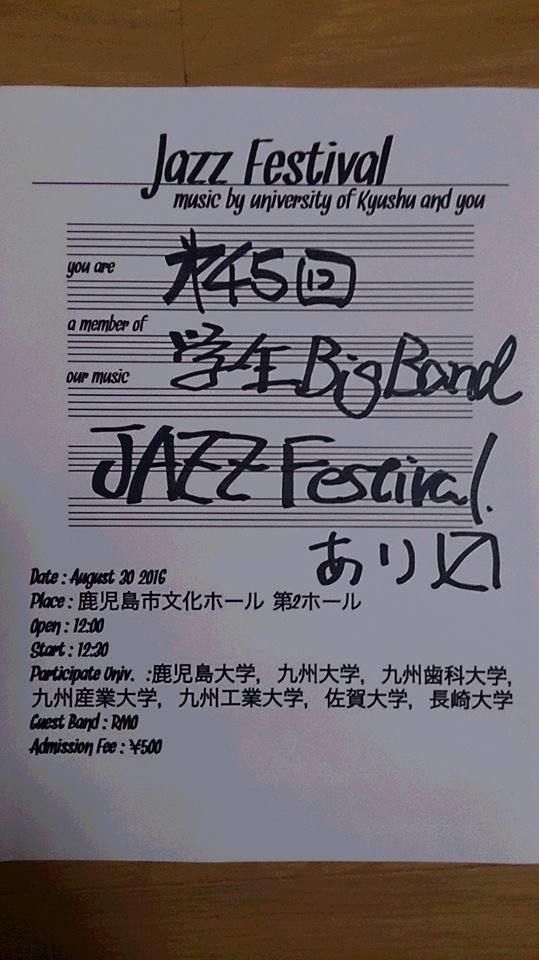 Jazz Festival
music by university of Kyushu and you
you are
a member of
our music
第45回
学生Big Band
JAZZ Festival.
あり〼
Date : August 30 2016
Place : 鹿児島市文化ホール 第2ホール
Open : 12:00
Start : 12:30
Participate Univ. :鹿児島大学, 九州大学, 九州歯科大学,
九州産業大学, 九州工業大学, 佐賀大学, 長崎大学
Guest Band : RMO
Admission Fee : ¥500